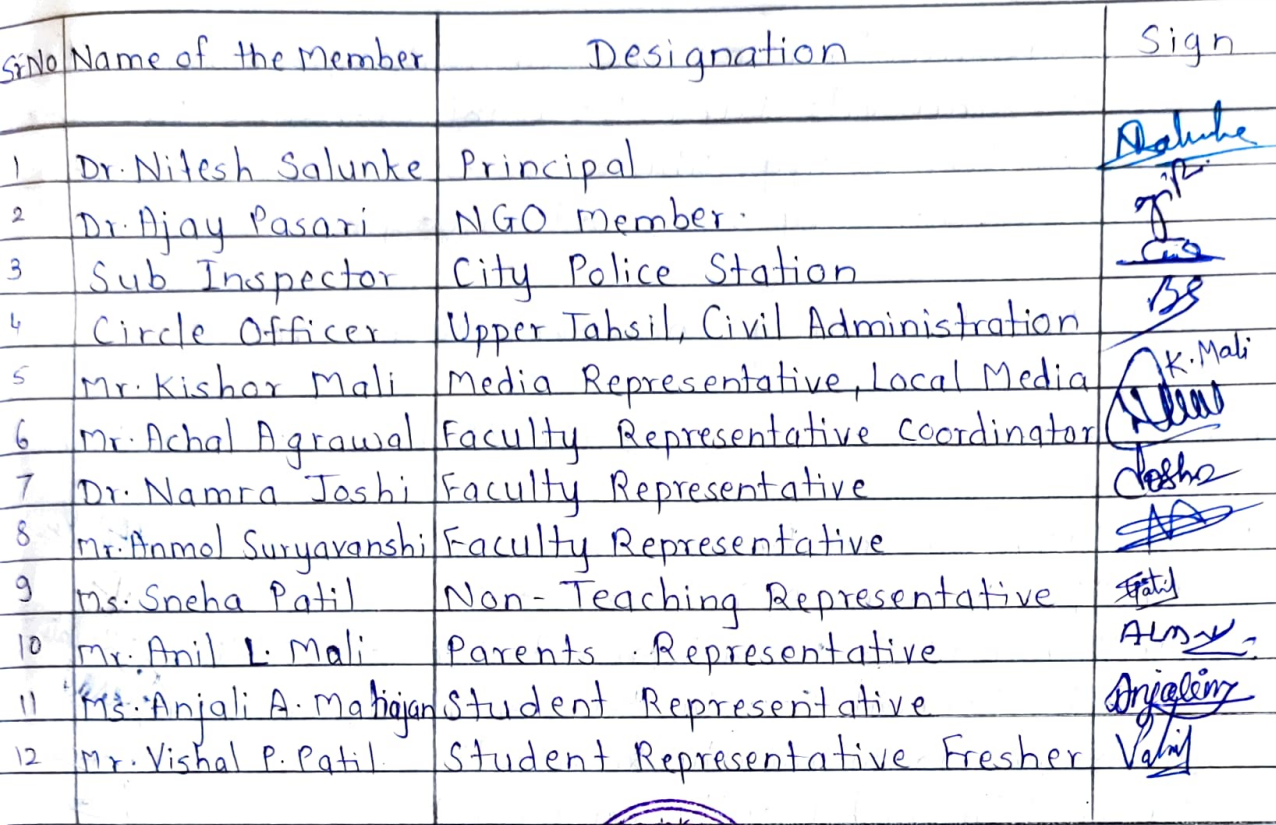 Sr.No Name of the Member Designation Sign
1 Dr. Nitesh Salunke Principal
2 Dr. Ajay Pasari NGO Member.
3 Sub Inspector City Police Station
4 Circle Officer Upper Tahsil, Civil Administration
5 Mr. Kishor Mali Media Representative, Local Media K. Mali
6 Mr. Achal Agrawal Faculty Representative Coordinator
7 Dr. Namra Joshi Faculty Representative
8 Mr. Anmol Suryavanshi Faculty Representative
9 Ms. Sneha Patil Non-Teaching Representative Patil
10 Mr. Anil L. Mali Parents Representative
11 Ms. Anjali A. Mahajan Student Representative
12 Mr. Vishal P. Patil Student Representative Fresher